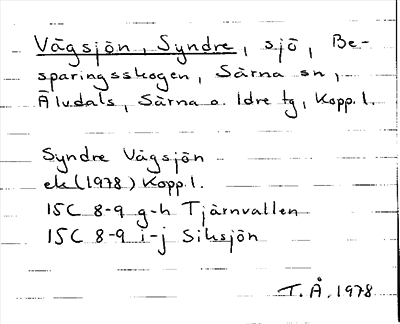 Vågsjön, Syndre, sjö, Be-
sparingsskogen, Särna sn,
Älvdals, Särna o. Idre tg, Kopp. l.
Syndre Vågsjön
ek (1978) Kopp. l.
15C 8-9 g-h Tjärnvallen
15C 8-9 i-j Siksjön
T.Å. 1978